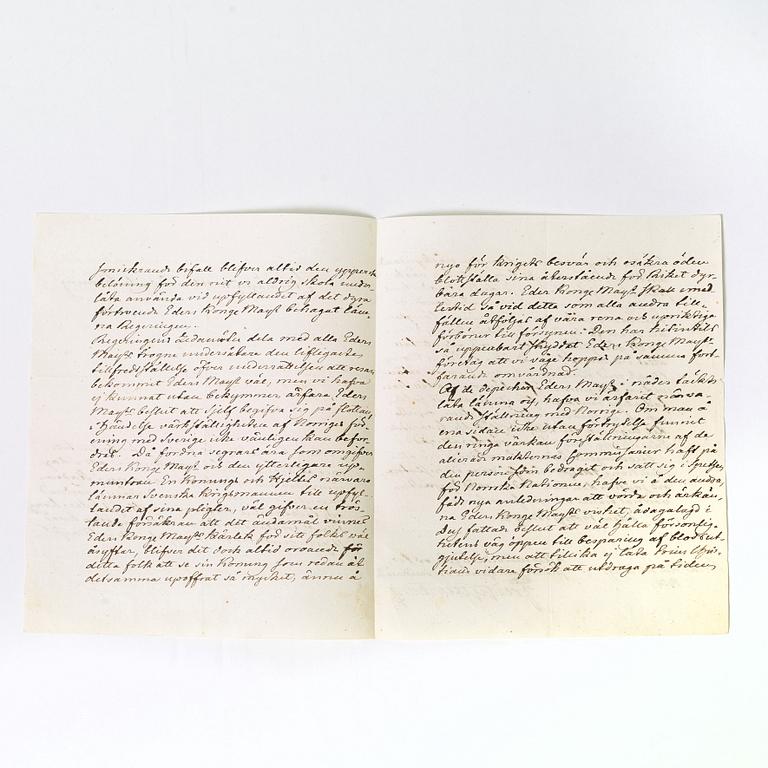 bifall blifver altid den upperst
belöning för den nit vi aldrig skola under
låta använda vid upfyllandet af det dyra
förtroende Eders Konge Mayst behagat läm
na Regeringen.
Regeringens Ledamöter dela med alla Eders
Mayst trogne undersåtare den lifligaste
tillfredsställelse öfver underrättelsen att resan
bekommit Eders Mayst väl, men vi hafva
ej kunnat utan bekymmer ärfara Eders
Mayst beslut att sjelf begifva sig på flottan,
i händelse värkställigheten af Norriges för-
ening med Sverige icke vänligen kan befor-
dras. Då fordna segrars ära som omgifver
Eders Konge Mayst och den ytterligare up-
muntran En Konungs och Hjeltes närvaro
lämnar Svenska krigsmannen till upfyl-
landet af sina pligter, väl gifver en trös-
tande försäkran att det ändamål vinnes
Eders Konge Mayst Kärlek för sitt folks väl
åsyftar, blifver det dock altid oroande för
detta folk att se sin Konung som redan åt
detsamma upoffrat så mycket, ännu å
nyo för krigets besvär och osäkra öden
blottställa sina återstående för Riket dyr-
bara dagar. Eders Konge Mayst skall imed
lertid så vid detta som alla andra till-
fällen åtföljas af våra rena och uprigtiga
förböner till försynen. Den har hitintils
så uppenbart skyddat Eders Konge Mayst
företag att vi våge hoppas på samma fort
farande omvårdnad.
Af de depecher Eders Mayst i nåder täckts
låta lämna oss, hafva vi ärfarit närva-
rande ställning med Norrige. Om man å
ena sidan icke utan förtrytelse funnit
den ringa värkan föreställningarne af de
alierade makternas Commissarier haft på
den person som bedragit och satt sig i spetsen
för Norrska Nationen, hafva vi å den andra,
fådt nya anledningar att vörda och ärkän-
na Eders Konge Maysts vishet, ådagalagd i
Dess fattade beslut att väl hålla försonlig-
hetens väg öppen till besparing af blodsut
gjutelse, men att tillika ej låta Prins Chris-
tians vidare försök att utdraga på tiden